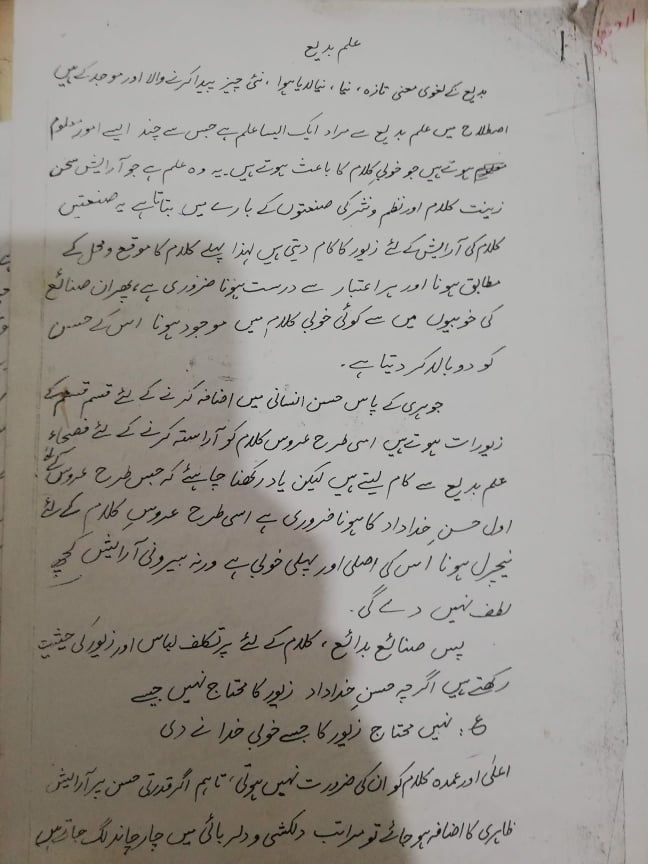 علم بدیع
بدیع کے لغوی معنی تازہ، نیا، نکالا ہوا، نئی چیز پیدا کرنے والا اور موجد کے ہیں
اصطلاح میں علم بدیع سے مراد ایک ایسا علم ہے جس سے چند ایسے امور معلوم
ہوتے ہیں جو خوبی کلام کا باعث ہوتے ہیں۔ یہ وہ علم ہے جو آرایش سخن
زینت کلام اور نظم و نثر کی صنعتوں کے بارے میں بتاتا ہے یہ صنعتیں
کلام کی آرایش کے لئے زیور کا کام دیتی ہیں لہذا پہلے کلام کا موقع و محل کے
مطابق ہونا اور ہر اعتبار سے درست ہونا ضروری ہے، پھر ان صنائع
کی خوبیوں میں سے کوئی خوبی کلام میں موجود ہونا اس کے حسن
کو دوبالا کر دیتا ہے۔
جوہری کے پاس حسن انسانی میں اضافہ کرنے کے لئے قسم قسم کے
زیورات ہوتے ہیں اسی طرح عروس کلام کو آراستہ کرنے کے لئے فصحاء
علم بدیع سے کام لیتے ہیں لیکن یاد رکھنا چاہئے کہ جس طرح عروس کے لئے
اول حسنِ خداداد کا ہونا ضروری ہے اسی طرح عروسِ کلام کے لئے
نیچرل ہونا اس کی اصلی اور پہلی خوبی ہے ورنہ بیرونی آرایش کچھ
لطف نہیں دے گی۔
پس صنائع بدائع، کلام کے لئے پرتکلف لباس اور زیور کی حیثیت
رکھتے ہیں اگرچہ حسنِ خداداد زیور کا محتاج نہیں جیسے
ع: نہیں محتاج زیور کا جسے خوبی خدا نے دی
اعلیٰ اور عمدہ کلام کو ان کی ضرورت نہیں ہوتی، تاہم اگر قدرتی حسن پر آرایش
ظاہری کا اضافہ ہو جائے تو مراتب دلکشی و دلربائی میں چار چاند لگ جاتے ہیں